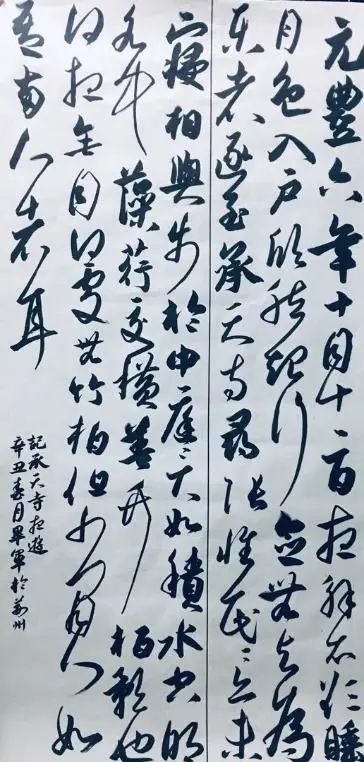 元豐六年十月十二日夜解衣欲睡
月色入戶欣然起行念無與為
樂者遂至承天寺尋張懷民々亦未
寢相與步於中庭々下如積水空明
水中藻荇交橫蓋竹柏影也
何夜無月何處無竹柏但少閒人如
吾兩人者耳
記承天寺夜遊
辛丑春月畢軍於萬州